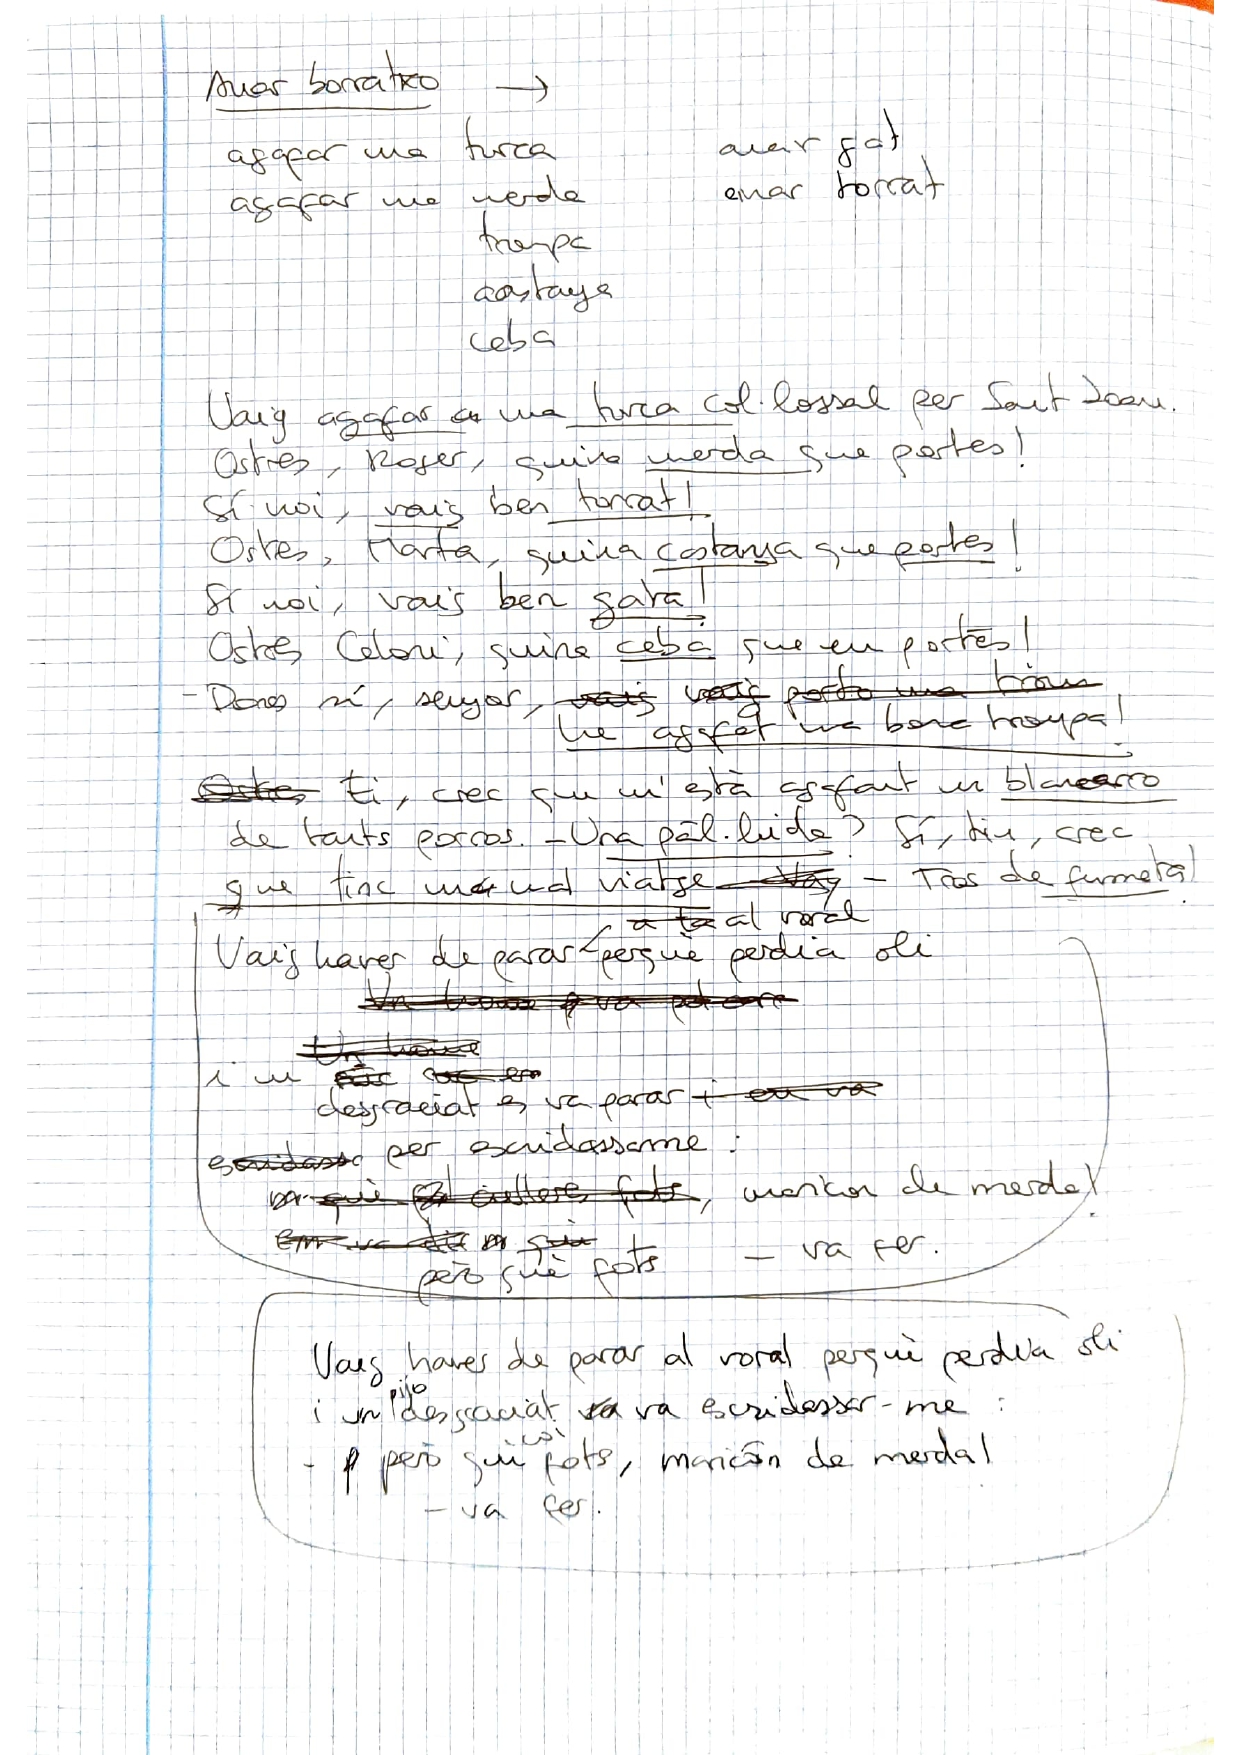 Anar borratxo →
agafar una turca anar gat
agafar una merda anar torrat
trompa
castanya
ceba
Vaig agafar una turca col·lossal per Sant Joan.
Ostres, Roger, quina merda que portes!
Sí noi, vaig ben torrat!
Ostres, Marta, quina castanya que portes!
Sí noi, vaig ben gata!
Ostres Celoni, quina ceba que en portes!
- Doncs sí, senyor, vaig vaig porto una trom
he agafat una bona trompa!
Ostres Ei, crec que m'està agafant un blancarro
de tants porros. - Una pàl·lida? Sí, tiu, crec
que tinc un mal viatge - Tros de fumeta!
al voral
Vaig haver de parar perquè perdia oli
Un home
i un
desgraciat es va parar i em va
escridassa per escridassarme:
, maricon de merda!
- va fer.
però què fots
Vaig haver de parar al voral perquè perdia oli
pijo
i un desgraciat va va escridassar-me:
coi
- però què fots, maricón de merda!
- va fer.